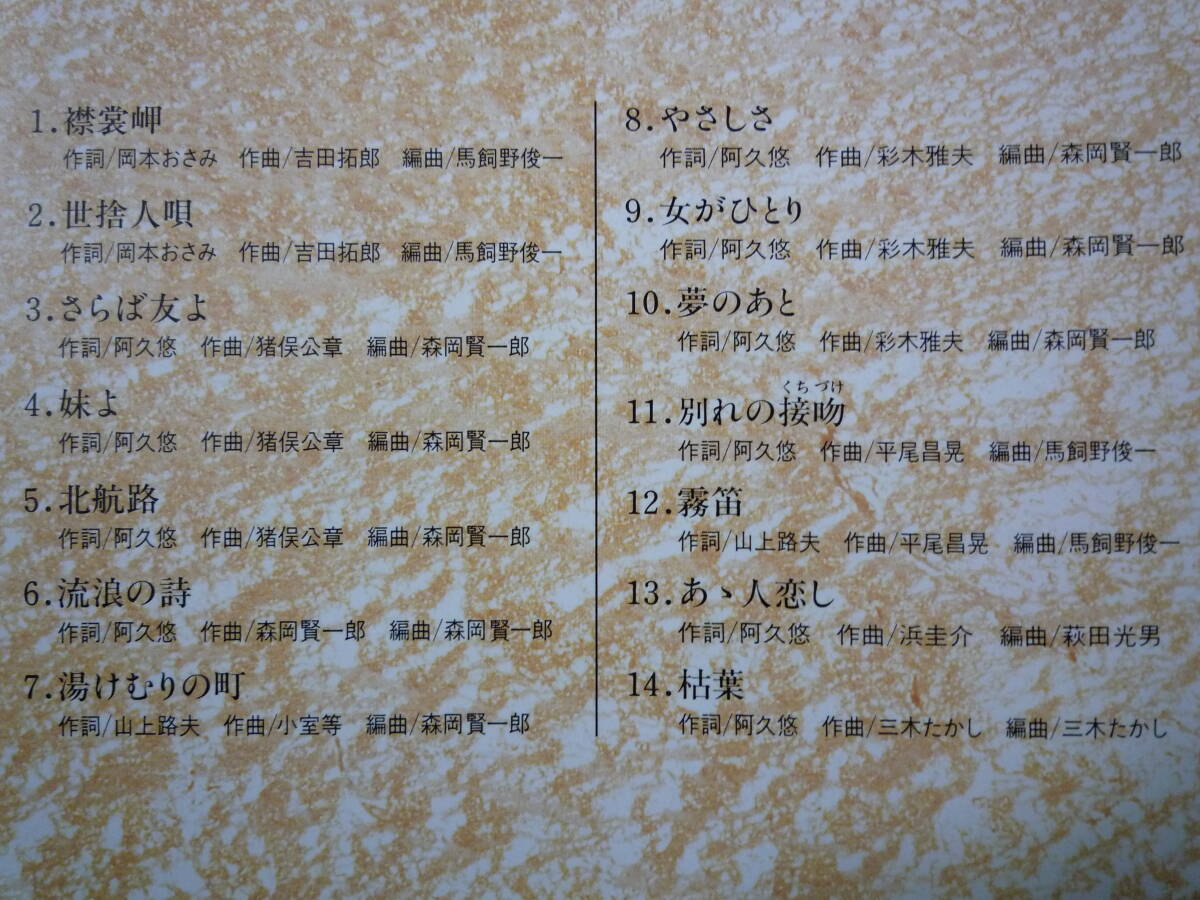 1.襟裳岬
作詞/岡本おさみ 作曲/吉田拓郎 編曲/馬飼野俊一
2.世捨人唄
作詞/岡本おさみ 作曲/吉田拓郎 編曲/馬飼野俊一
3.さらば友よ
作詞/阿久悠 作曲/猪俣公章 編曲/森岡賢一郎
4.妹よ
作詞/阿久悠 作曲/猪俣公章 編曲/森岡賢一郎
5.北航路
作詞/阿久悠 作曲/猪俣公章 編曲/森岡賢一郎
6.流浪の詩
作詞/阿久悠 作曲/森岡賢一郎 編曲/森岡賢一郎
7.湯けむりの町
作詞/山上路夫 作曲/小室等 編曲/森岡賢一郎
8.やさしさ
作詞/阿久悠 作曲/彩木雅夫 編曲/森岡賢一郎
9.女がひとり
作詞/阿久悠 作曲/彩木雅夫 編曲/森岡賢一郎
10.夢のあと
作詞/阿久悠 作曲/彩木雅夫 編曲/森岡賢一郎
くちづけ
11.別れの接吻
作詞/阿久悠 作曲/平尾昌晃 編曲/馬飼野俊一
12.霧笛
作詞/山上路夫 作曲/平尾昌晃 編曲/馬飼野俊一
13.あゝ人恋し
作詞/阿久悠 作曲/浜圭介 編曲/萩田光男
14.枯葉
作詞/阿久悠 作曲/三木たかし 編曲/三木たかし